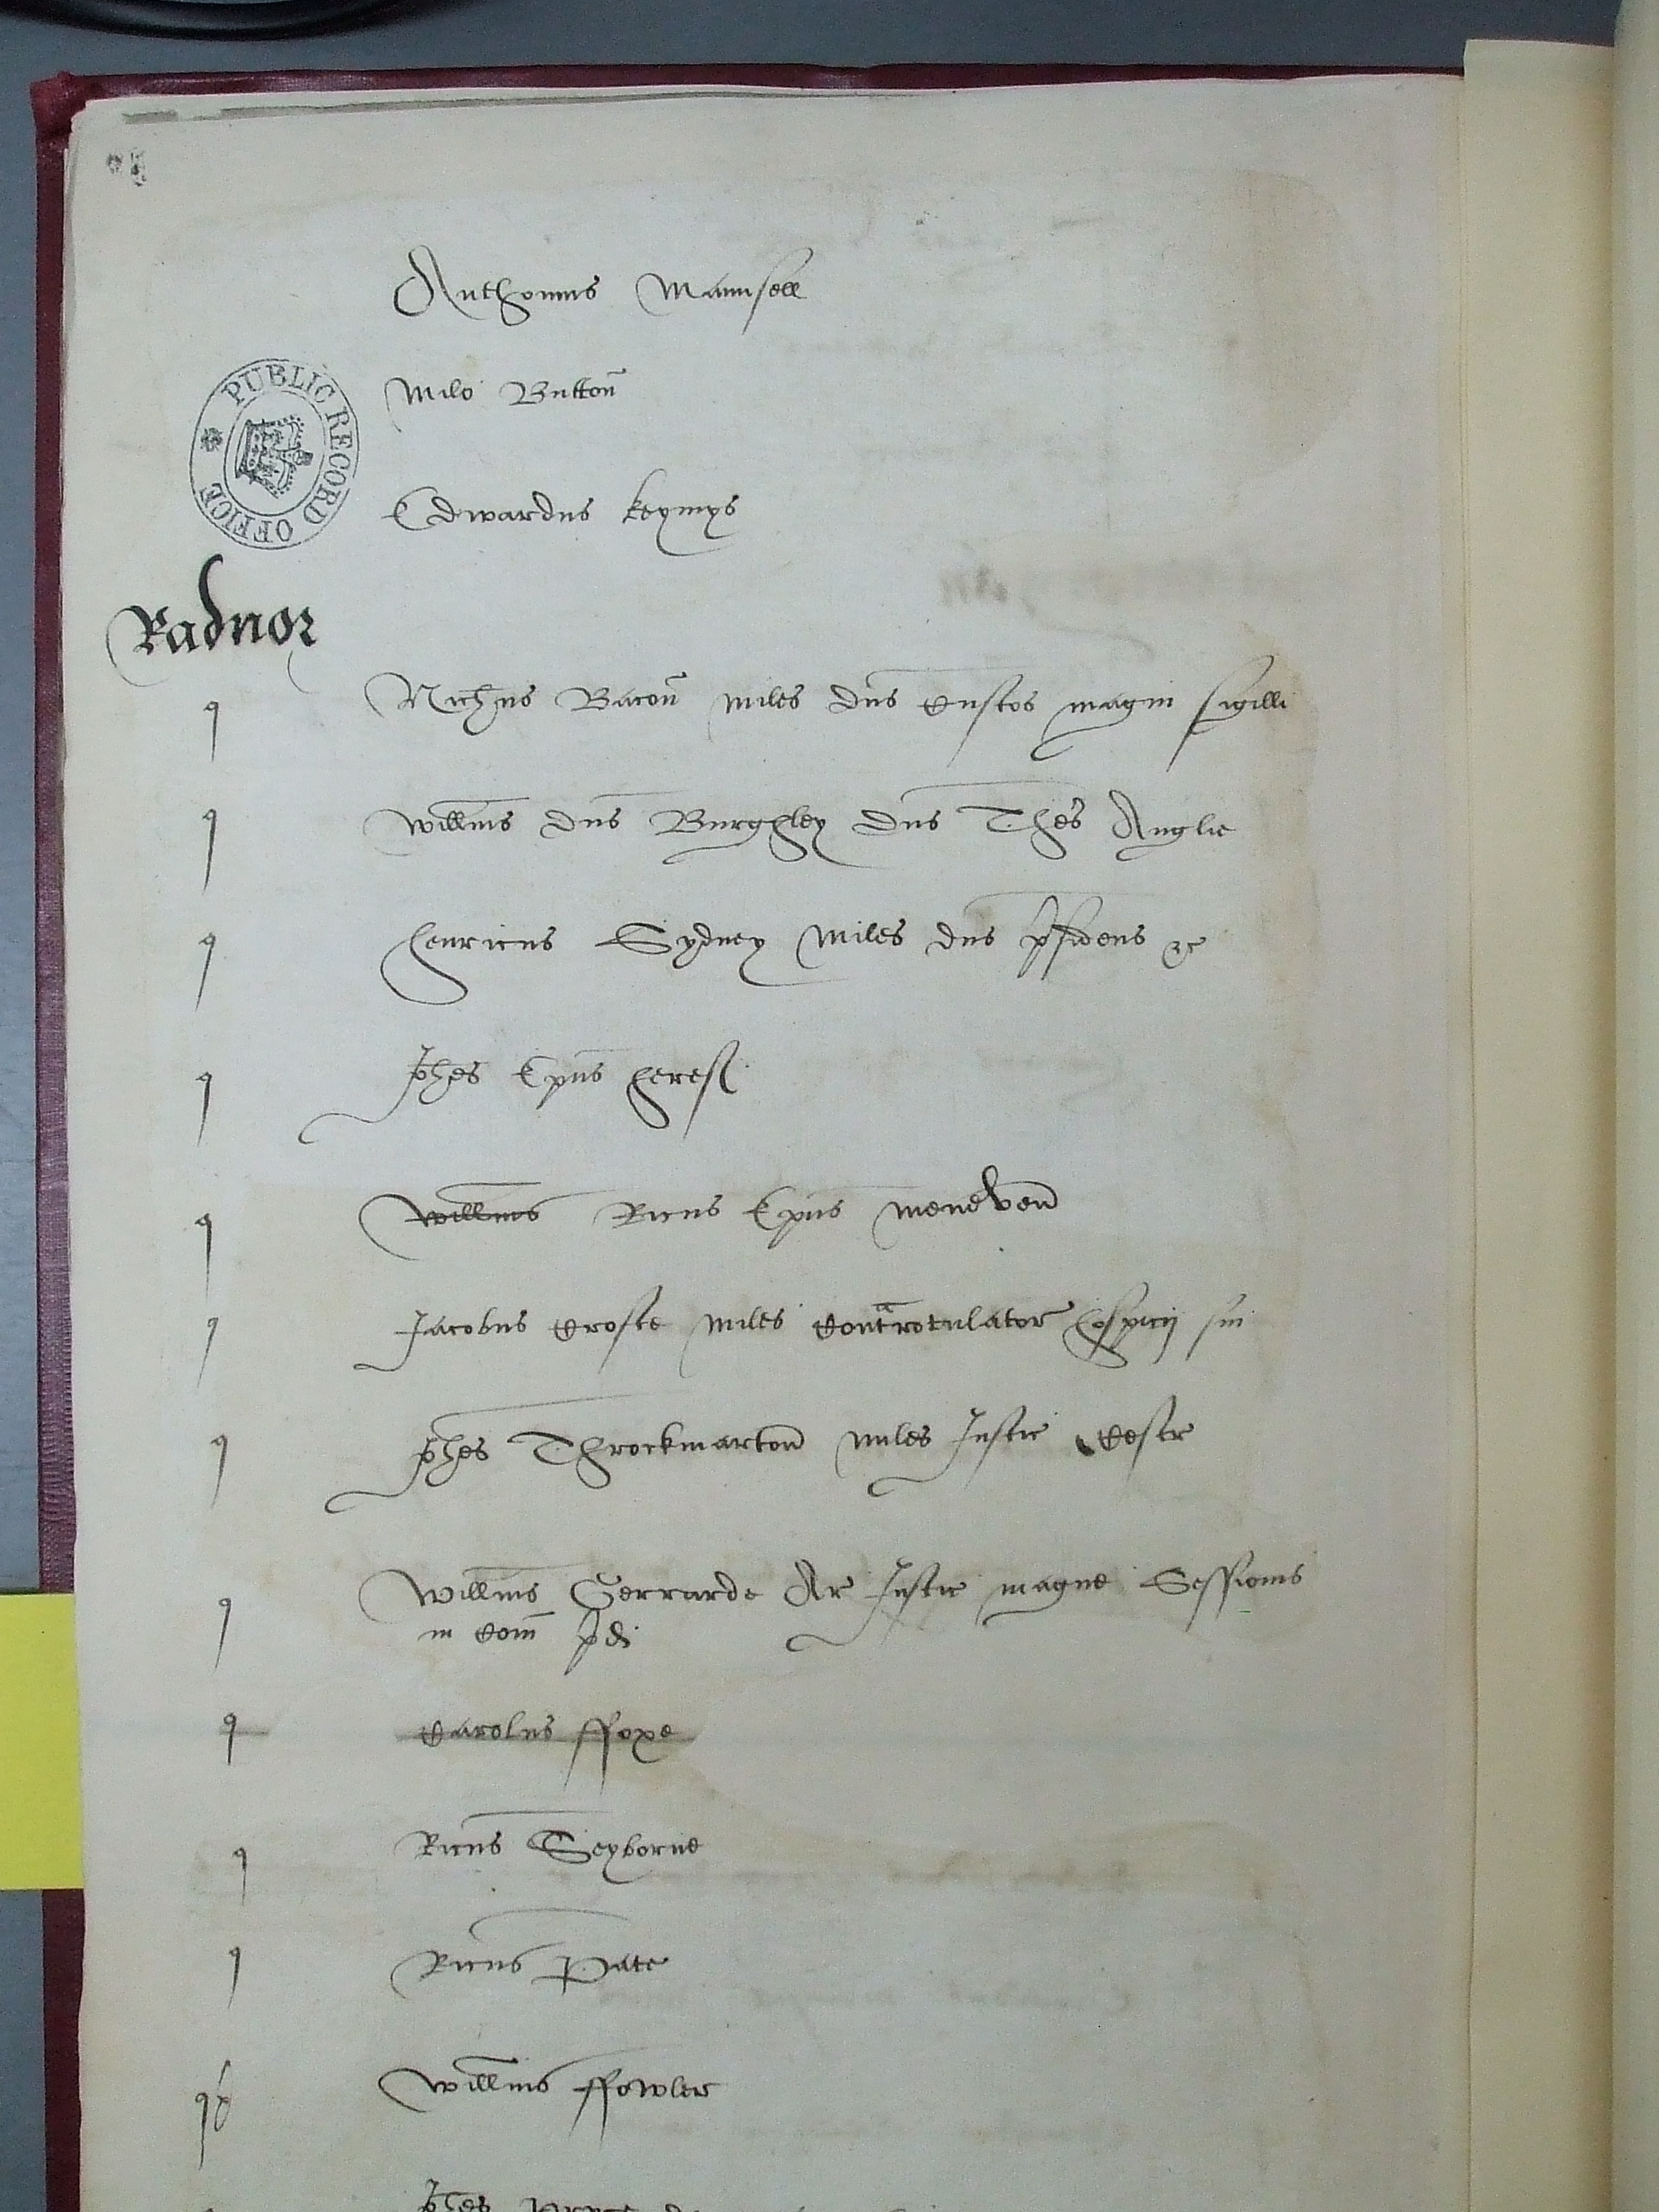 Anthonius Maunsell
PUBLIC RECORD OFFICE
Milo Button
Edwardus Keymys
Radnor
q Nichus Bacon miles dns Custos magni sigilli
q Willms dns Burghley dns Thes Anglie
q Henricus Sydney miles dns psidens &c
q Johes Epus Heref
q Willms Ricus Epus meneven
q Jacobus Crofte miles Contrarotulator hospicij sui
q Johes Throckmarton miles Justic Cestr
q Willms Gerrarde Ar Justic magne Sessionis
in Com pdi
q Carolus ffoxe
q Ricus Seyborne
q Ricus Pate
q Willms ffowler
Johes